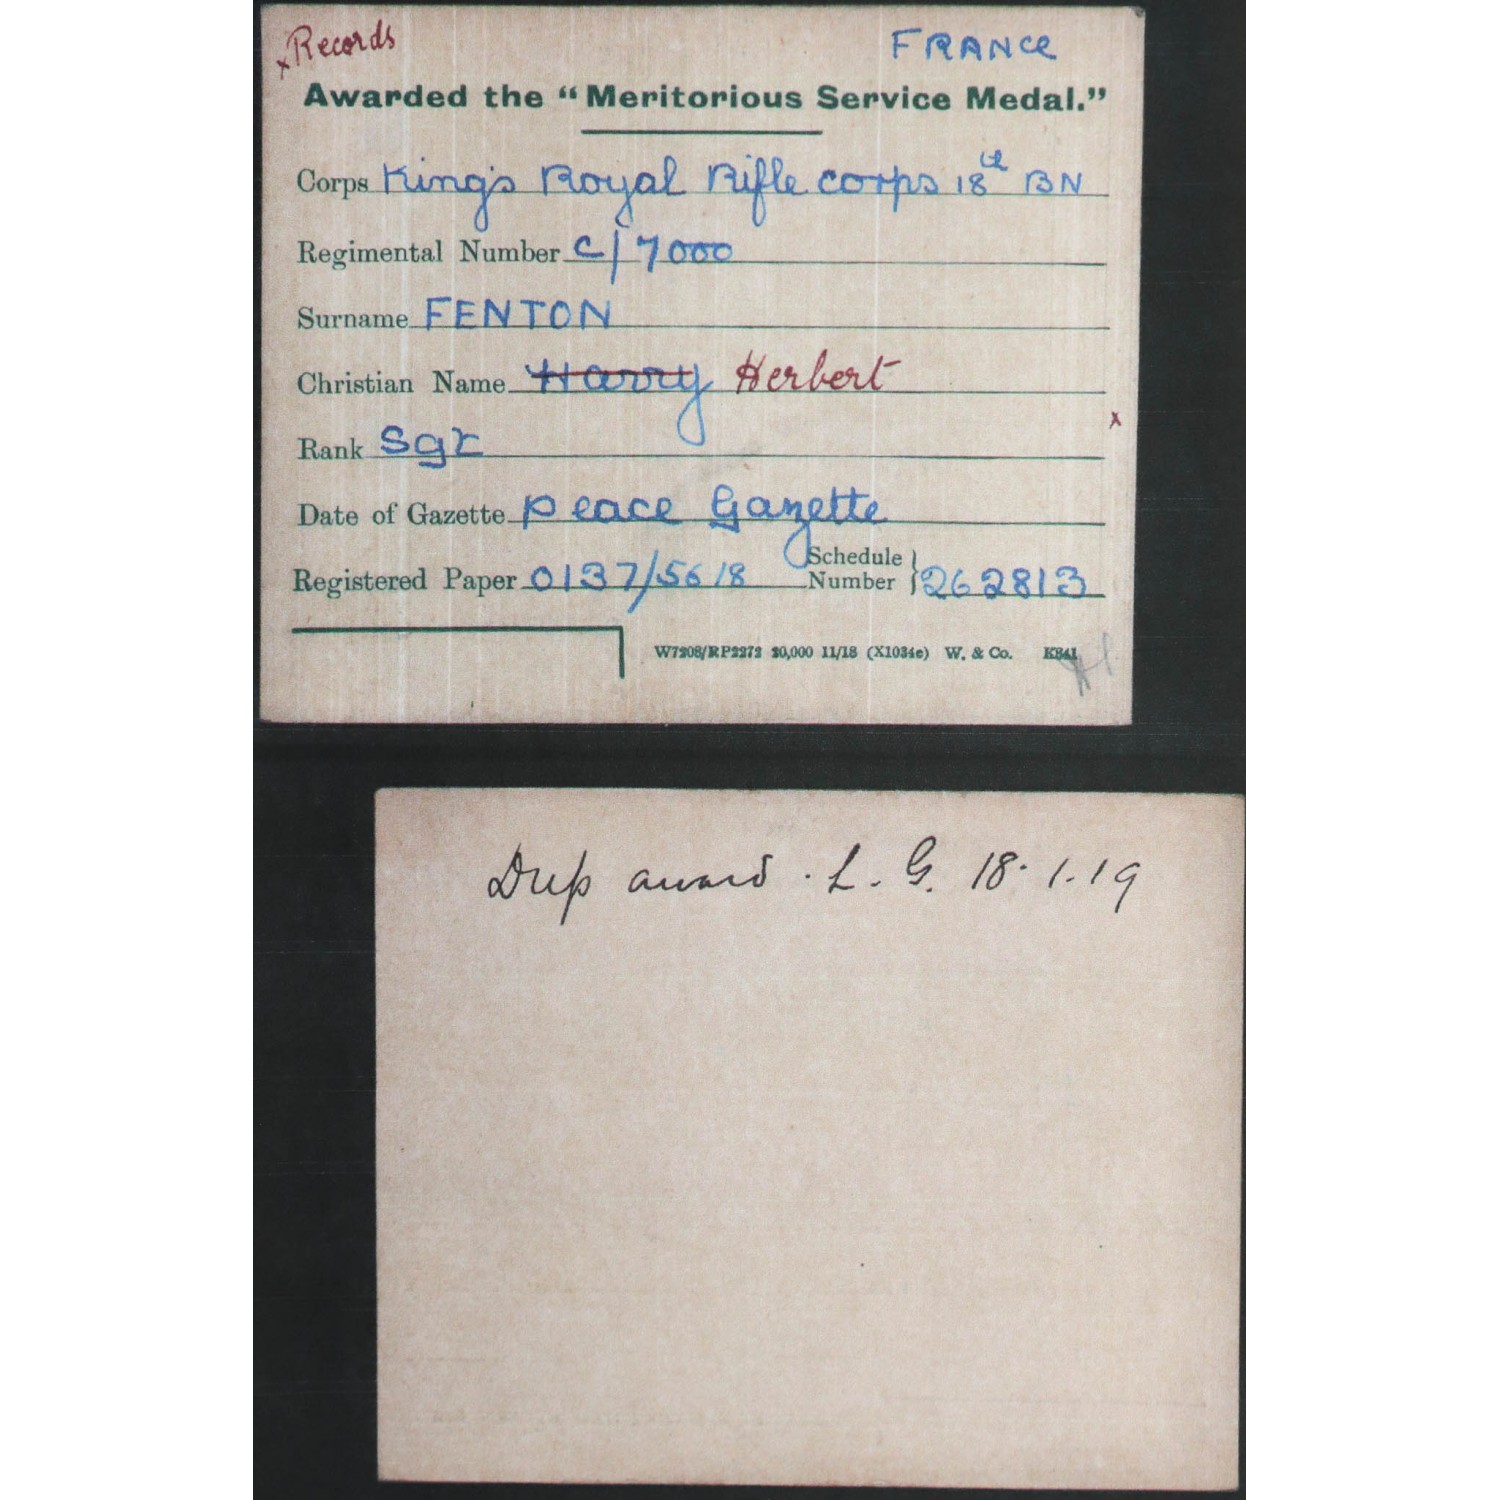 x Records
FRANCE
Awarded the “Meritorious Service Medal.”
Corps King's Royal Rifle Corps 18th BN
Regimental Number C/7000
Surname FENTON
Christian Name Harry Herbert
x
Rank Sgt
Date of Gazette Peace Gazette
Registered Paper 0137/5618 Schedule Number } 262813
W7208/RP2272 20,000 11/18 (X1034c) W. & Co. K841
Dup award. L. G. 18.1.19